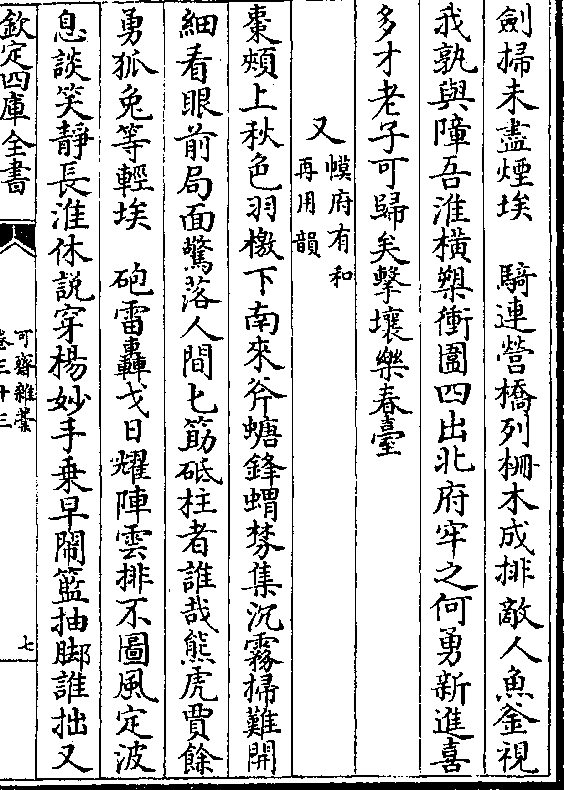 劍掃未盡煙埃　騎連營橋列柵木成排敵人魚釜視
我孰與障吾淮橫槊衝圍四出北府牢之何勇新進喜
多才老子可歸矣擊壤樂春臺
又
幙府有和
再用韻
棗頰上秋色羽檄下南來斧螗鋒蝟棼集沉霧掃難開
細看眼前局面驚落人間匕筯砥柱者誰哉熊虎賈餘
勇狐兔等輕埃　砲雷轟戈日耀陣雲排不圖風定波
息談笑靜長淮休説穿楊妙手乗早鬧籃抽脚誰拙又
欽定四庫全書
可齋雜藁
卷三十三
七